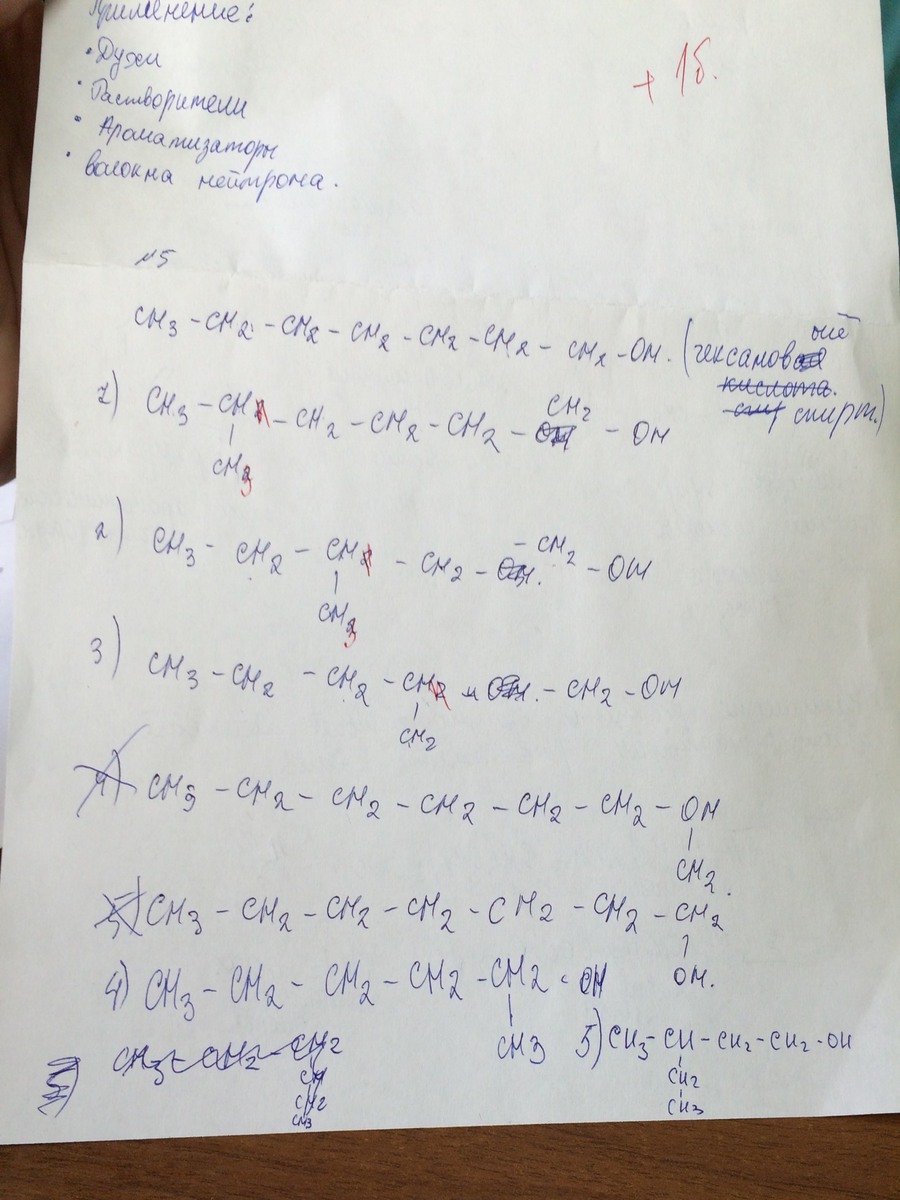 Применение:
• Духи
+ 1б.
• Растворители
• Ароматизаторы
• волокна нейтрона.
№5
CH3 - CH2 - CH2 - CH2 - CH2 - CH2 - CH2 - OH. (гексановый
кислота.
спирт.)
1) CH3 - CH - CH2 - CH2 - CH2 - CH2 - OH
CH3
2) CH3 - CH2 - CH - CH2 - - CH2 - OH
CH3
3) CH3 - CH2 - CH2 - CH - CH2 - OH
CH2
4) CH3 - CH2 - CH2 - CH2 - CH2 - CH2 - OH
CH2.
5) CH3 - CH2 - CH2 - CH2 - CH2 - CH2 - CH2
OH.
4) CH3 - CH2 - CH2 - CH2 - CH2 - OH
CH3
5) CH3 - CH - CH2 - CH2 - OH
CH2
CH3
CH3 - CH2 - CH2
CH2
CH3